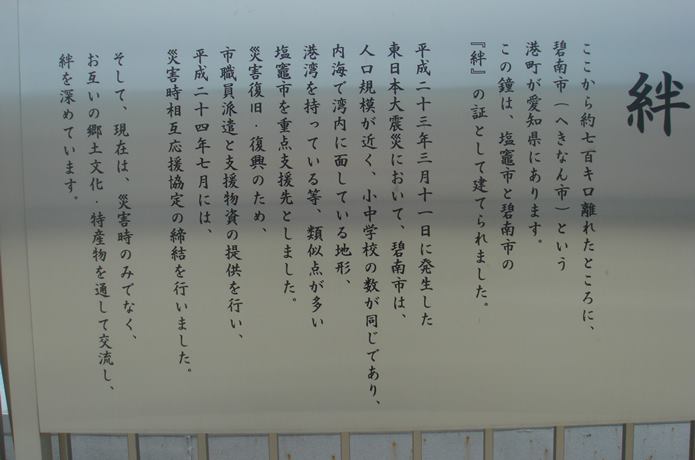 絆
ここから約七百キロ離れたところに、
碧南市（へきなん市）という
港町が愛知県にあります。
この鐘は、塩竈市と碧南市の
『絆』の証として建てられました。
平成二十三年三月十一日に発生した
東日本大震災において、碧南市は、
人口規模が近く、小中学校の数が同じであり、
内海で湾内に面している地形、
港湾を持っている等、類似点が多い
塩竈市を重点支援先としました。
災害復旧・復興のため、
市職員派遣と支援物資の提供を行い、
平成二十四年七月には、
災害時相互応援協定の締結を行いました。
そして、現在は、災害時のみでなく、
お互いの郷土文化・特産物を通して交流し、
絆を深めています。